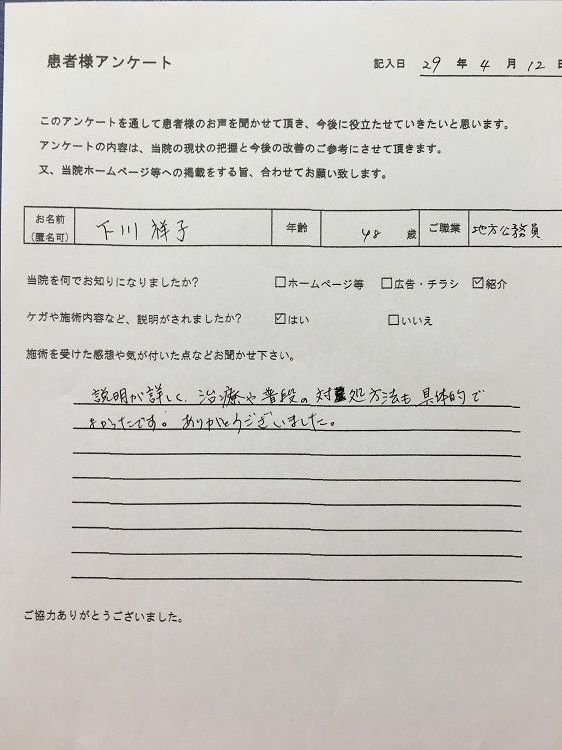 患者様アンケート
記入日 29 年 4 月 12 日
このアンケートを通して患者様のお声を聞かせて頂き、今後に役立たせていきたいと思います。
アンケートの内容は、当院の現状の把握と今後の改善のご参考にさせて頂きます。
又、当院ホームページ等への掲載をする旨、合わせてお願い致します。
お名前 (匿名可) 下川 祥子 年齢 48 歳 ご職業 地方公務員
当院を何でお知りになりましたか? □ホームページ等 □広告・チラシ ☑紹介
ケガや施術内容など、説明がされましたか? ☑はい □いいえ
施術を受けた感想や気が付いた点などお聞かせ下さい。
説明が詳しく、治療や普段の対処方法も具体的で
よかったです。ありがとうございました。
ご協力ありがとうございました。